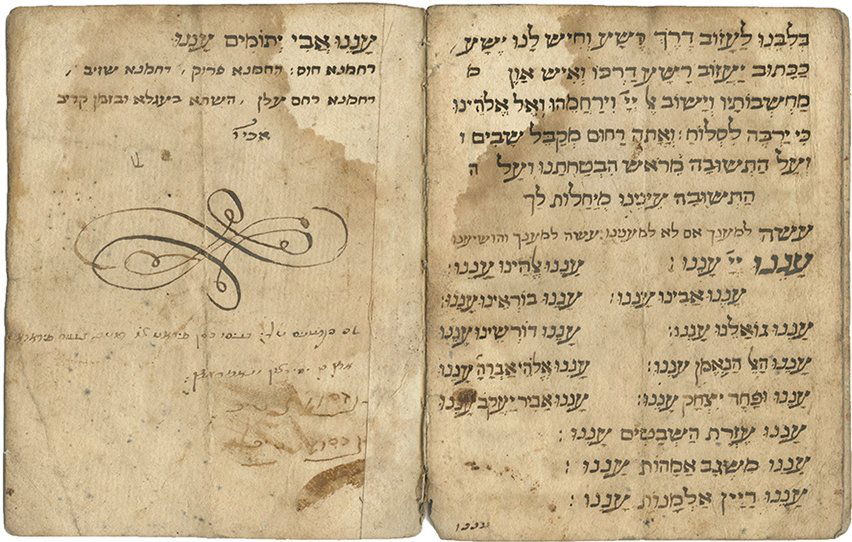 בלבנו לעזוב דרך רשע וחיש לנו ישע,
ככתוב יעזוב רשע דרכו ואיש און מ
מחשבותיו וישוב אל יי' וירחמהו ואל אלהינו
כי ירבה לסלוח: ואתה רחום מקבל שבים ו
ועל התשובה מראש הבטחתנו ועל ה
התשובה עינינו מיחלות לך
עשה למענך אם לא למעננו: עשה למענך והושיענו
עננו יי' עננו: עננו אלהינו עננו:
עננו אבינו עננו: עננו בוראינו עננו:
עננו גואלנו עננו: עננו דורשינו עננו
עננו האל הנאמן עננו: עננו אלהי אברהם עננו
עננו ופחד יצחק עננו: עננו אביר יעקב עננו
עננו עזרת השבטים עננו:
עננו משגב אמהות עננו:
עננו דיין אלמנות עננו:
עננו
עננו אבי יתומים עננו:
רחמנא חוס: רחמנא פרוק, רחמנא שזיב,
רחמנא רחם עלן, השתא בעגלא ובזמן קריב
אכי"ר